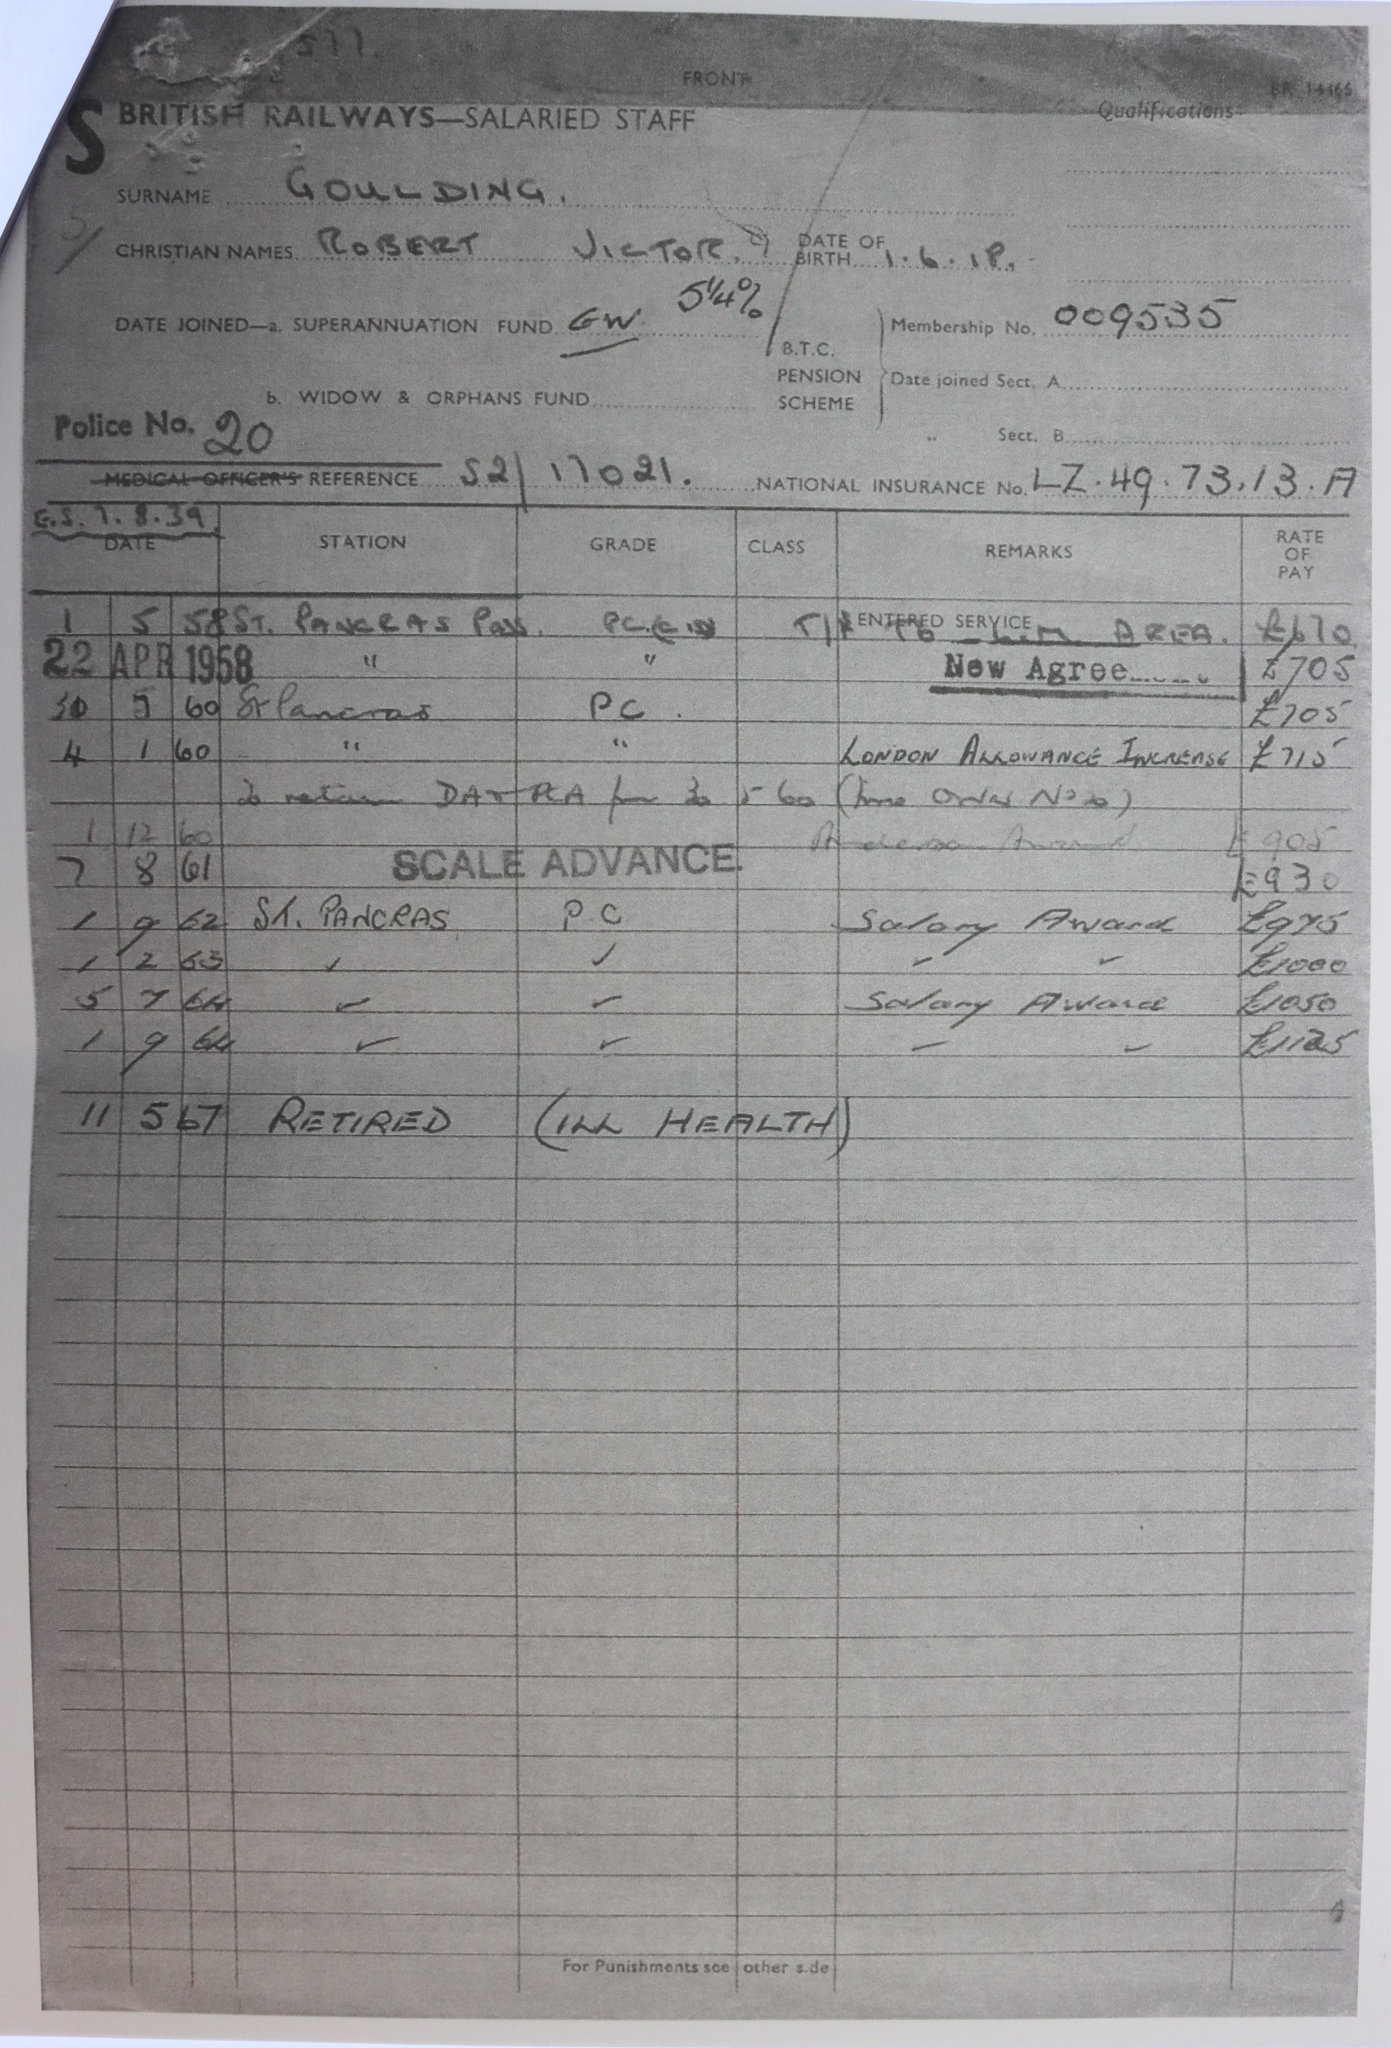 577.
FRONT
BR 14466
S BRITISH RAILWAYS—SALARIED STAFF
Qualifications
SURNAME GOULDING.
CHRISTIAN NAMES ROBERT VICTOR. DATE OF BIRTH 1.6.18.
DATE JOINED—a. SUPERANNUATION FUND GW. 5¼%
B.T.C. PENSION SCHEME
Membership No. 009535
Date joined Sect. A
b. WIDOW & ORPHANS FUND
„ Sect. B
Police No. 20
MEDICAL OFFICER'S REFERENCE S2/17021. NATIONAL INSURANCE No. LZ.49.73.13.A
E.S. 7.8.39
DATE STATION GRADE CLASS REMARKS RATE OF PAY
ENTERED SERVICE
1 5 58 ST. PANCRAS Pass. PC T/F TO L.M. AREA. £670
22 APR 1958 " " New Agree £705
30 5 60 St Pancras PC. £705
4 1 60 " " LONDON ALLOWANCE INCREASE £715
To retain DA + RA from 30 5 60 (Force Order No 20)
1 12 60 Award £905
7 8 61 SCALE ADVANCE. £930
1 9 62 ST. PANCRAS PC Salary Award £975
1 2 63 ✓ ✓ ✓ ✓ £1000
5 7 64 ✓ ✓ Salary Award £1050
1 9 64 ✓ ✓ ✓ ✓ £1125
11 5 67 RETIRED (ILL HEALTH)
For Punishments see other side